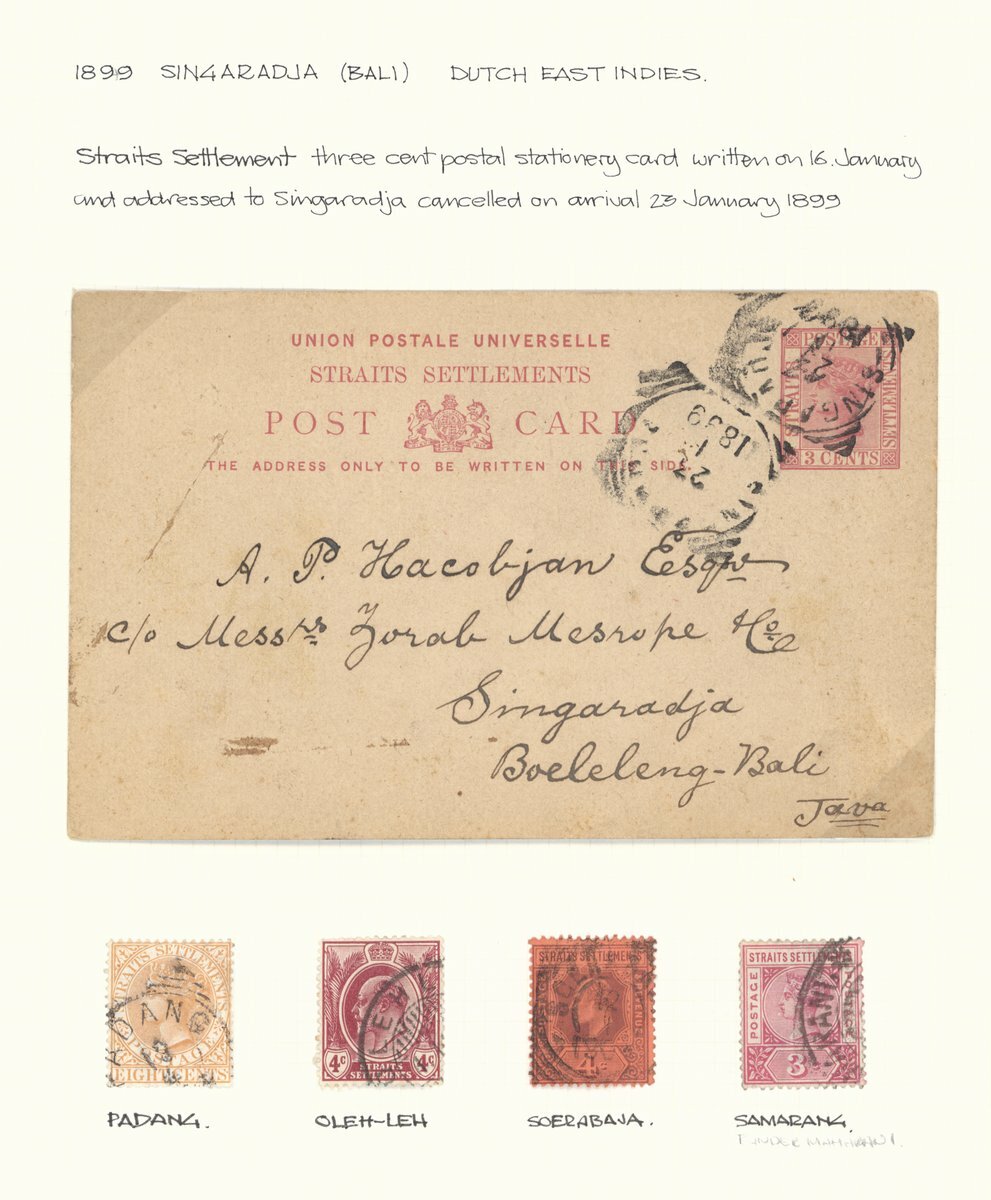 1899 SINGARADJA (BALI) DUTCH EAST INDIES.
Straits Settlement three cent postal stationery card written on 16. January
and addressed to Singaradja cancelled on arrival 23 January 1899
UNION POSTALE UNIVERSELLE
STRAITS SETTLEMENTS
POST CARD
THE ADDRESS ONLY TO BE WRITTEN ON THIS SIDE.
POSTAGE
STRAITS
SETTLEMENTS
3 CENTS
1899
SINGARADJA
1899
23
A. P. Hacobjan Esqre
c/o Messrs Zorab Mesrope & Co
Singaradja
Boeleleng-Bali
Java
STRAITS SETTLEMENTS
PADANG
POSTAGE
EIGHT CENTS
4c 4c
STRAITS
SETTLEMENTS
STRAITS SETTLEMENTS
POSTAGE
REVENUE
STRAITS SETTLEMENTS
POSTAGE
3
PADANG.
OLEH-LEH
SOERABAJA.
SAMARANG.